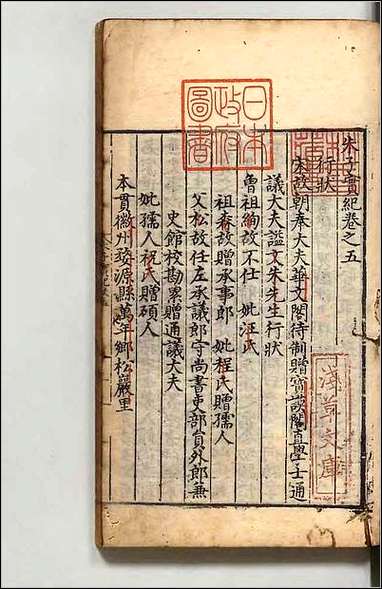 朱子實紀卷之五
行狀
宋故朝奉大夫華文閣待制贈寶謨閣直學士通
議大夫謚文朱先生行狀
曾祖絢故不仕 妣汪氏
祖森故贈承事郎 妣程氏贈孺人
父松故任左承議郎守尚書吏部員外郎兼
史館校勘累贈通議大夫
妣孺人祝氏贈碩人
本貫徽州婺源縣萬年鄉松巖里
日本
政府
圖書
淺草文庫